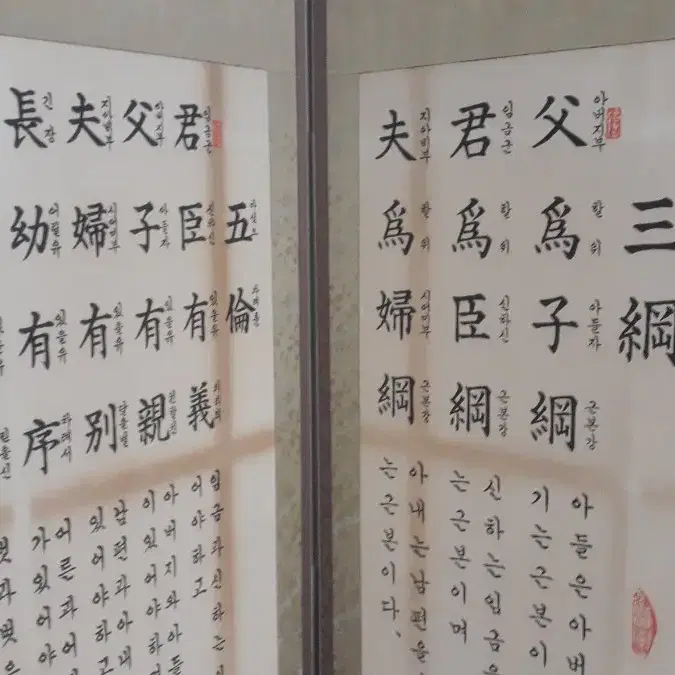 三綱
父爲子綱
아버지부 할위 아들자 근본강
아들은아버
기는근본이
君爲臣綱
임금군 할위 신하신 근본강
신하는임금을
는근본이며
夫爲婦綱
지아비부 할위 시어미부 근본강
아내는남편을
는근본이다.
五倫
君臣有義
임금군 신하신 있을유
임금과신하는
어야하고
父子有親
아버지부 아들자 있을유 친할친
아버지와아들
이있어야하
夫婦有別
지아비부 시어미부 있을유 다를별
남편과아내
있어야하고
長幼有序
긴장 어릴유 있을유 차례서
어른과어
가있어야
믿을신
벗과벗은